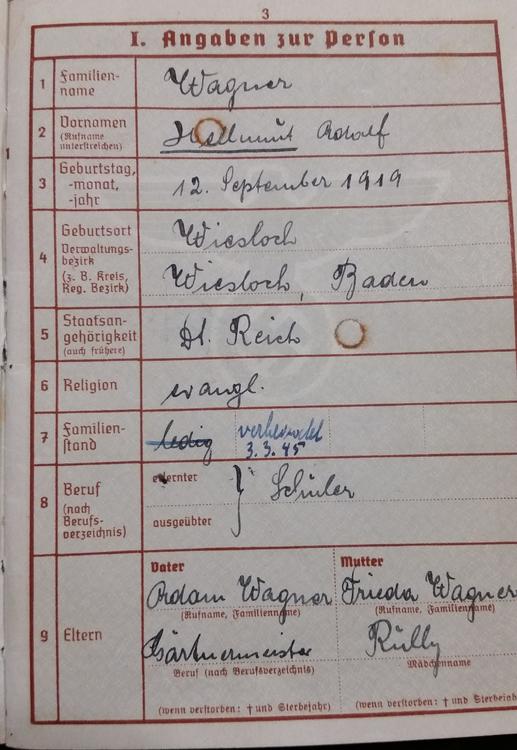 3
I. Angaben zur Person
1 Familien-
name
Wagner
2 Vornamen
(Rufname
unterstreichen)
Hellmut Adolf
3 Geburtstag,
-monat,
-jahr
12. September 1919
4 Geburtsort
Verwaltungs-
bezirk
(z. B. Kreis,
Reg. Bezirk)
Wiesloch
Wiesloch, Baden
5 Staatsan-
gehörigkeit
(auch frühere)
Dt. Reich
6 Religion
evangl.
7 Familien-
stand
ledig verheiratet
3.3.45
8 Beruf
(nach
Berufs-
verzeichnis)
erlernter
ausgeübter
} Schüler
9 Eltern
Vater Mutter
Adam Wagner Frieda Wagner
(Rufname, Familienname) (Rufname, Familienname)
Gärtnermeister Rülly
Beruf (nach Berufsverzeichnis) Mädchenname
(wenn verstorben: † und Sterbejahr) (wenn verstorben: † und Sterbejah